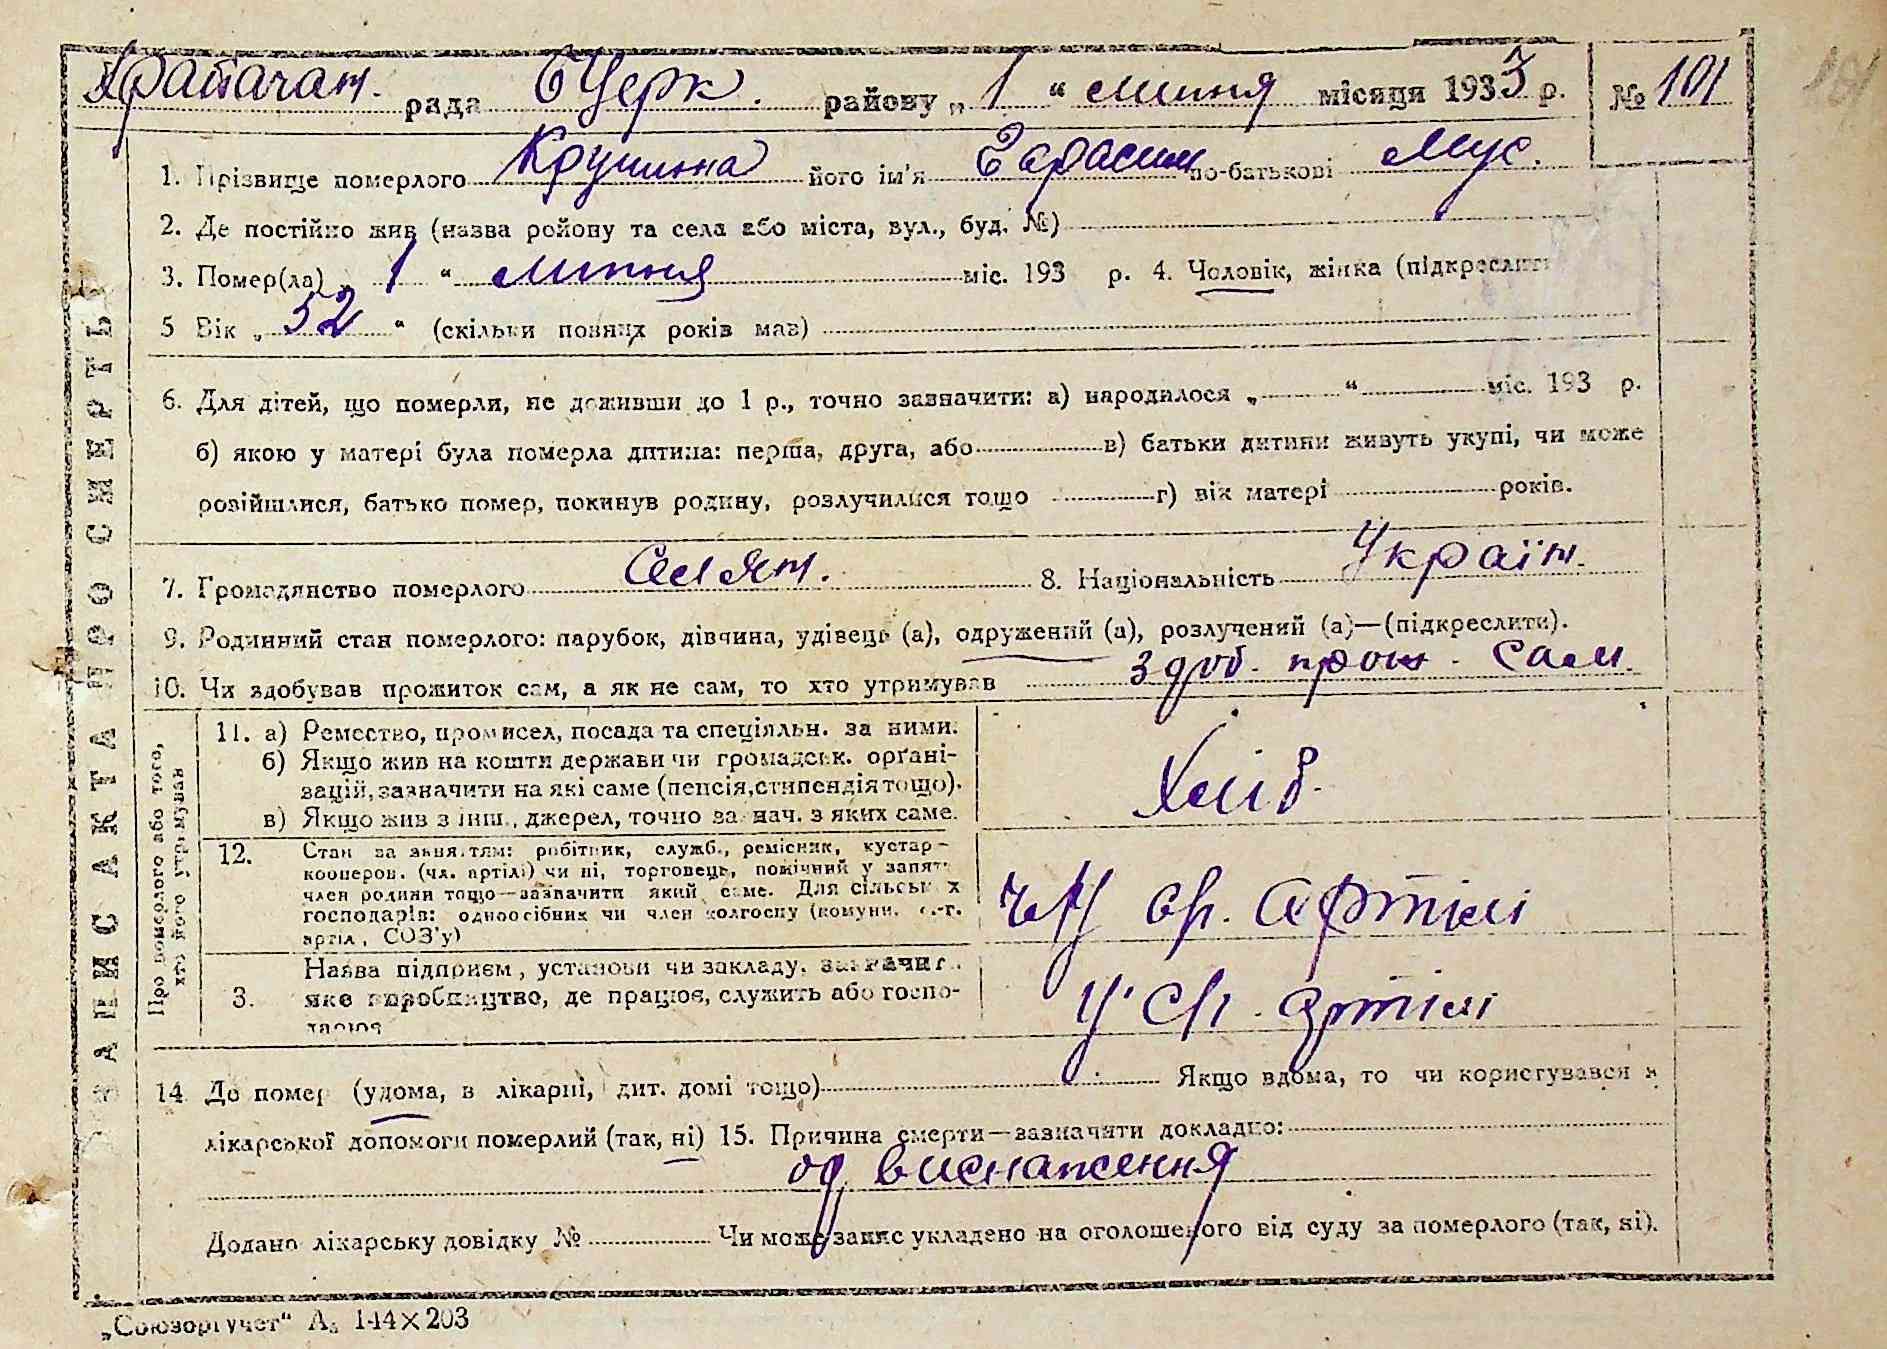 Храпачан. рада БЦерк. району „ 1 “ липня місяця 1933 р. № 101
101
1. Прізвище померлого Крушина його ім'я Гарасим по-батькові Мус.
2. Де постійно жив (назва району та села або міста, вул., буд. №)
3. Помер(ла) „ 1 “ липня міс. 193 р. 4. Чоловік, жінка (підкреслити
5 Вік „ 52 “ (скільки повних років мав)
6. Для дітей, що померли, не доживши до 1 р., точно зазначити: а) народилося „ “ міс. 193 р.
б) якою у матері була померла дитина: перша, друга, або в) батьки дитини живуть укупі, чи може
розійшлися, батько помер, покинув родину, розлучилися тощо г) вік матері років.
7. Громадянство померлого 8. Національність Україн.
9. Родинний стан померлого: парубок, дівчина, удівець (а), одружений (а), розлучений (а)—(підкреслити).
10. Чи здобував прожиток сам, а як не сам, то хто утримував здоб. прож. сам.
ЗАПИС АКТА ПРО СМЕРТЬ
Про померлого або того,
хто його утримував
11. а) Ремество, промисел, посада та спеціяльн. за ними.
б) Якщо жив на кошти держави чи громадськ. органі-
зацій, зазначити на які саме (пенсія, стипендія тощо).
в) Якщо жив з інш., джерел, точно зазнач. з яких саме.
Хліб.
12. Стан за заняттям: робітник, служб., ремісник, кустар-
кооперов. (чл. артілі) чи ні, торговець, помічний у занятт
член родини тощо—зазначити який саме. Для сільськ х
господарів: одноосібник чи член колгоспу (комуни, с.-г.
артіл, СОЗ'у)
чл сг. артілі
3. Назва підприєм, установи чи закладу, зазначит
яке виробництво, де працює, служить або госпо-
дарює
у сг. артілі
14 Де помер (удома, в лікарні, дит. домі тощо) Якщо вдома, то чи користувався з
лікарської допомоги померлий (так, ні) 15. Причина смерти—зазначити докладно:
од виснаження
Додано лікарську довідку № Чи може запис укладено на оголошеного від суду за померлого (так, ні).
„Союзоргучет“ А₅ 144×203